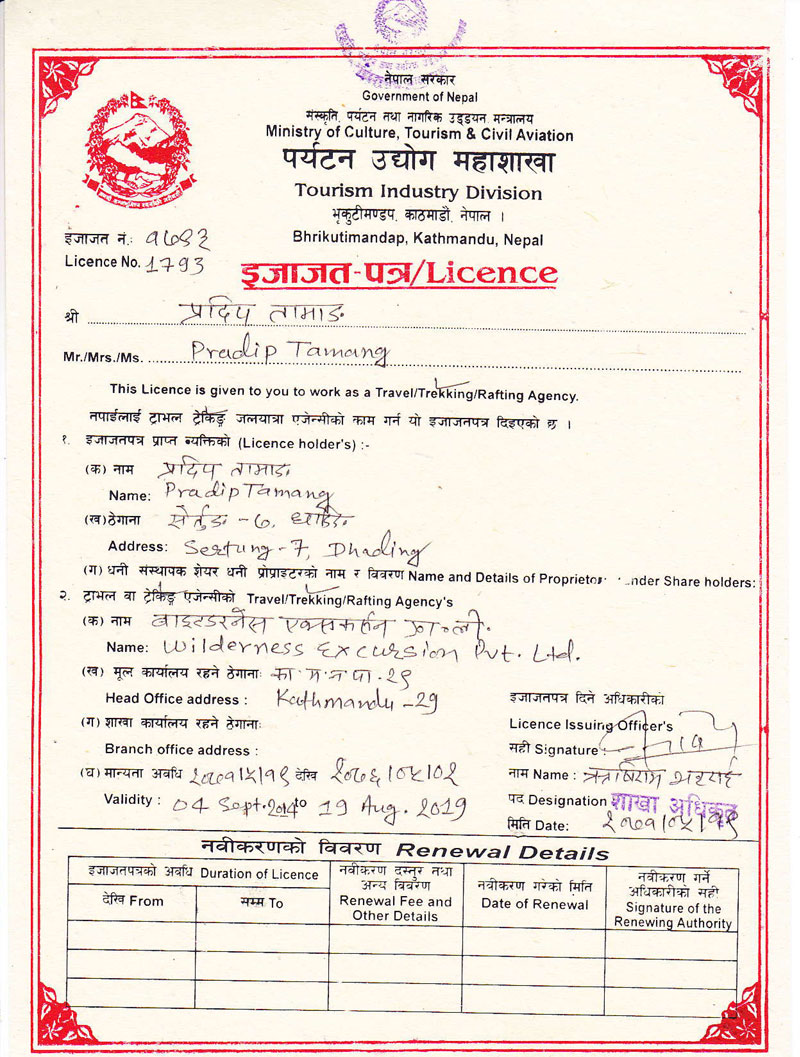 नेपाल सरकार
Government of Nepal
संस्कृति, पर्यटन तथा नागरिक उड्डयन मन्त्रालय
Ministry of Culture, Tourism & Civil Aviation
पर्यटन उद्योग महाशाखा
Tourism Industry Division
भृकुटीमण्डप, काठमाडौं, नेपाल ।
Bhrikutimandap, Kathmandu, Nepal
इजाजत नं.: १७९३
Licence No. 1793
इजाजत-पत्र/Licence
श्री प्रदिप तामाङ
Mr./Mrs./Ms. Pradip Tamang
This Licence is given to you to work as a Travel/Trekking/Rafting Agency.
तपाईलाई ट्राभल ट्रेकिङ्ग जलयात्रा एजेन्सीको काम गर्न यो इजाजतपत्र दिइएको छ ।
१. इजाजतपत्र प्राप्त व्यक्तिको (Licence holder's) :-
(क) नाम प्रदिप तामाङ
Name: Pradip Tamang
(ख) ठेगाना सेर्तुङ - ७, धादिङ
Address: Sertung-7, Dhading
(ग) धनी संस्थापक शेयर धनी प्रोप्राइटरको नाम र विवरण Name and Details of Proprietor Share holders:
२. ट्राभल वा ट्रेकिङ्ग एजेन्सीको Travel/Trekking/Rafting Agency's
(क) नाम वाइल्डरनेस एक्सकर्सन प्रा. ली.
Name: Wilderness Excursion Pvt. Ltd.
(ख) मूल कार्यालय रहने ठेगानाः का म न पा - २९
Head Office address : Kathmandu - 29
(ग) शाखा कार्यालय रहने ठेगानाः
Branch office address :
(घ) मान्यता अवधि २०७१/५/१९ देखि २०७६/०५/०२
Validity : 04 Sept. 2014 to 19 Aug. 2019
इजाजतपत्र दिने अधिकारीको
Licence Issuing Officer's
सही Signature :
नाम Name : ऋषिराम भट्टराई
पद Designation शाखा अधिकृत
मिति Date: २०७१/०५/१९
नवीकरणको विवरण Renewal Details
इजाजतपत्रको अवधि Duration of Licence
देखि From
सम्म To
नवीकरण दस्तुर तथा
अन्य विवरण
Renewal Fee and
Other Details
नवीकरण गरेको मिति
Date of Renewal
नवीकरण गर्ने
अधिकारीको सही
Signature of the
Renewing Authority